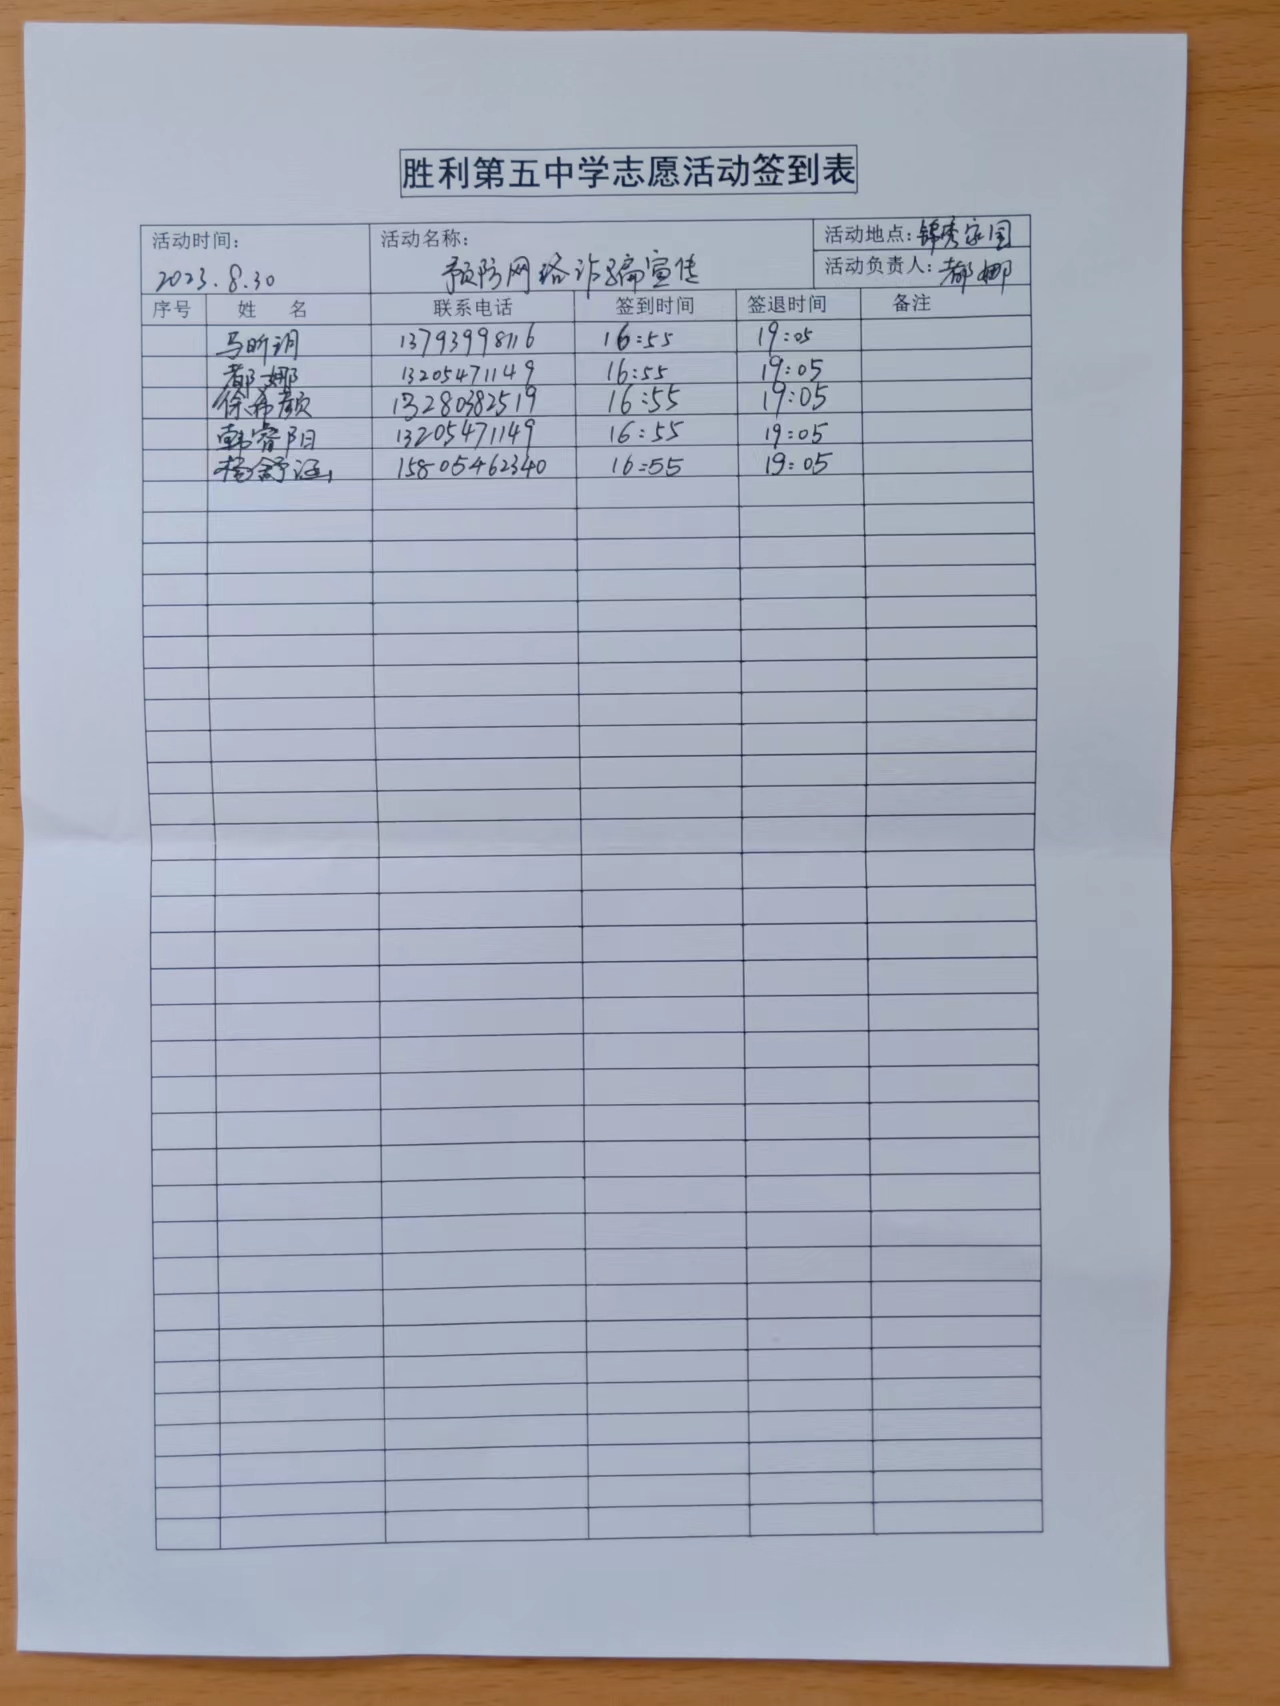 胜利第五中学志愿活动签到表
活动时间: 活动名称: 活动地点: 锦秀家园
2023.8.30 预防网络诈骗宣传 活动负责人: 都娜
序号 姓 名 联系电话 签到时间 签退时间 备注
马昕玥 13793998116 16:55 19:05
都娜 13205471149 16:55 19:05
徐希颜 13280382519 16:55 19:05
韩睿阳 13205471149 16:55 19:05
杨舒涵 15805462340 16:55 19:05